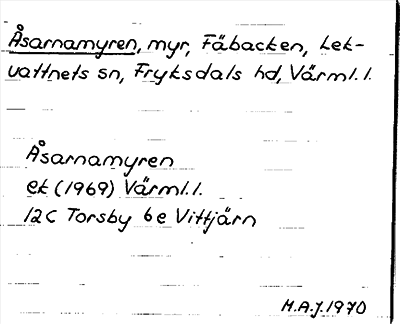 Åsarnamyren, myr, Fäbacken, Lek-
vattnets sn, Fryksdals hd, Värml.l.
Åsarnamyren
ek (1969) Värml.l.
12C Torsby 6e Vittjärn
M.A.J. 1970